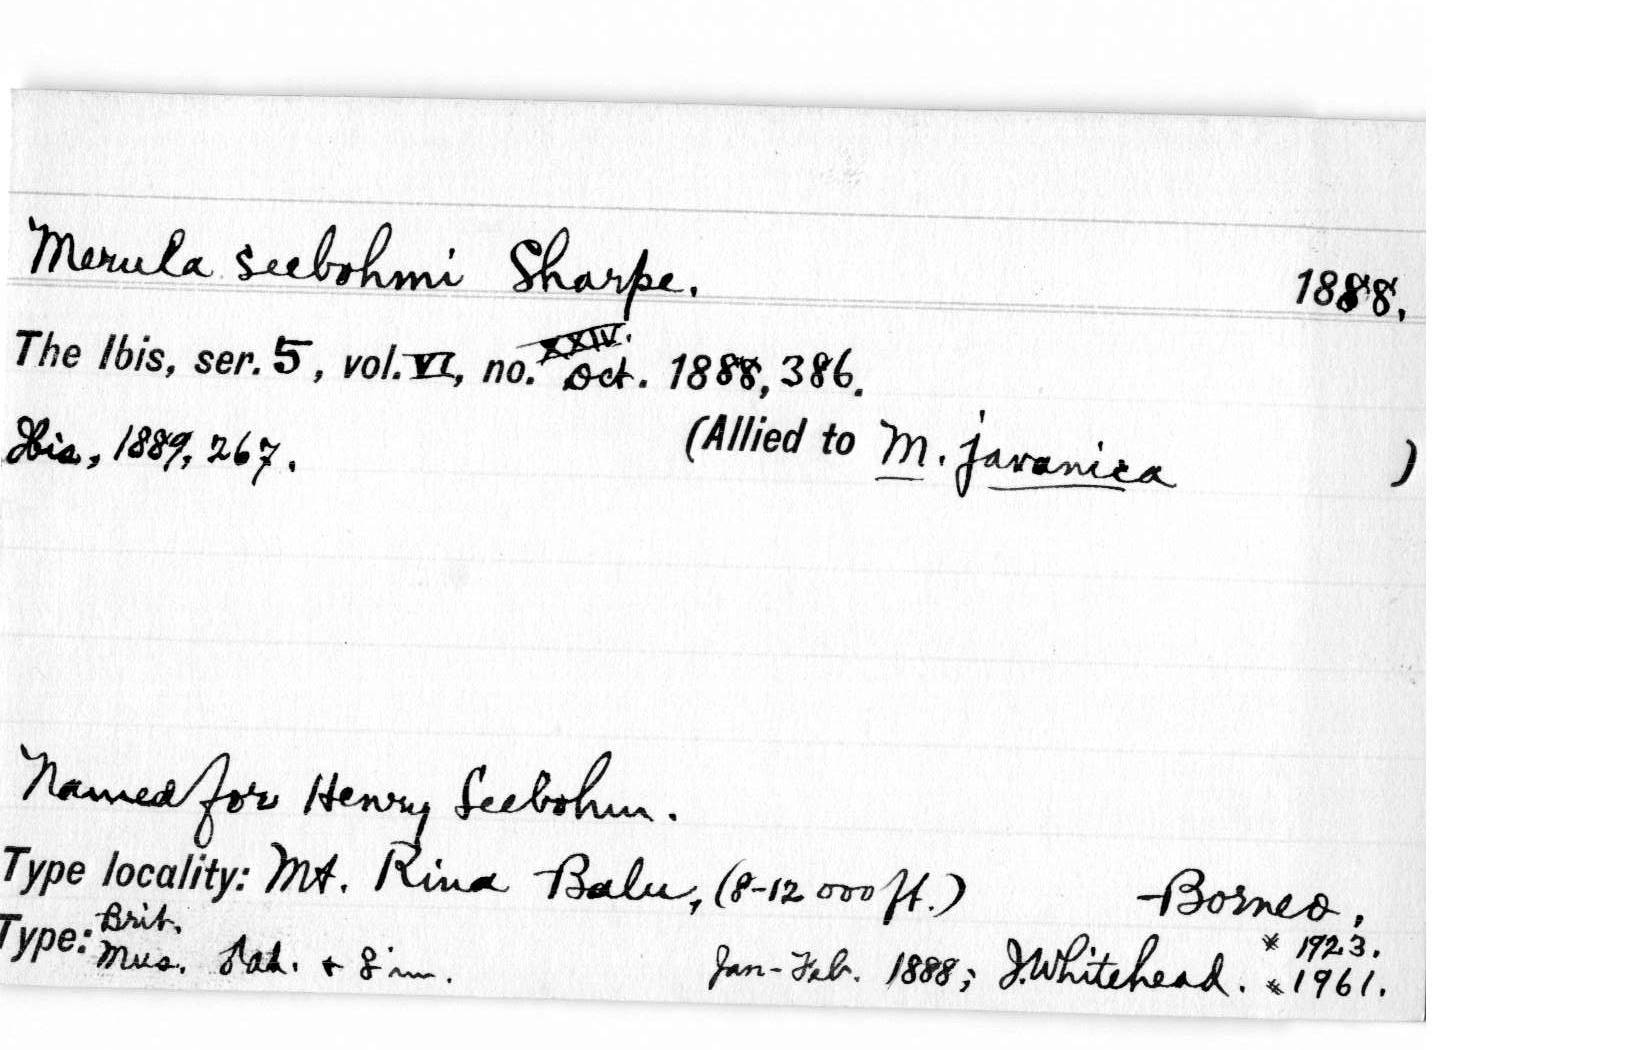 Merula seebohmi Sharpe. 1888.
The Ibis, ser. 5, vol. VI, no. XXIV. Oct. 1888, 386.
Ibis, 1889, 267. (Allied to M. javanica )
Named for Henry Seebohm.
Type locality: Mt. Kina Balu, (8-12 000 ft.) Borneo,
Type: Brit. Mus. ad. + im. Jan-Feb. 1888; J. Whitehead. * 1923. * 1961.